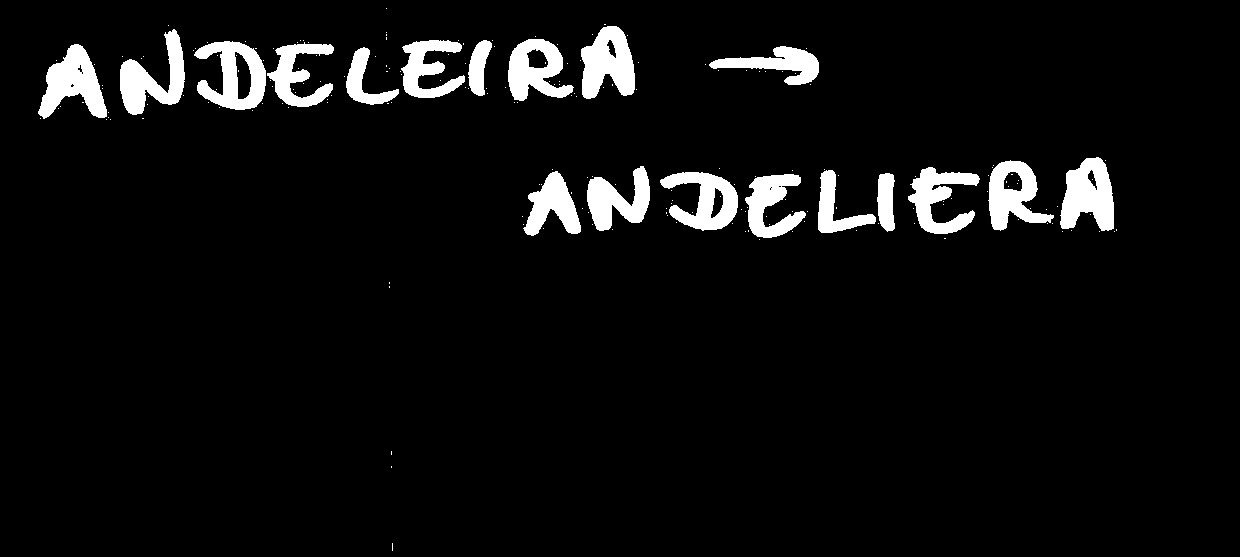 ANDELEIRA →
ANDELIERA